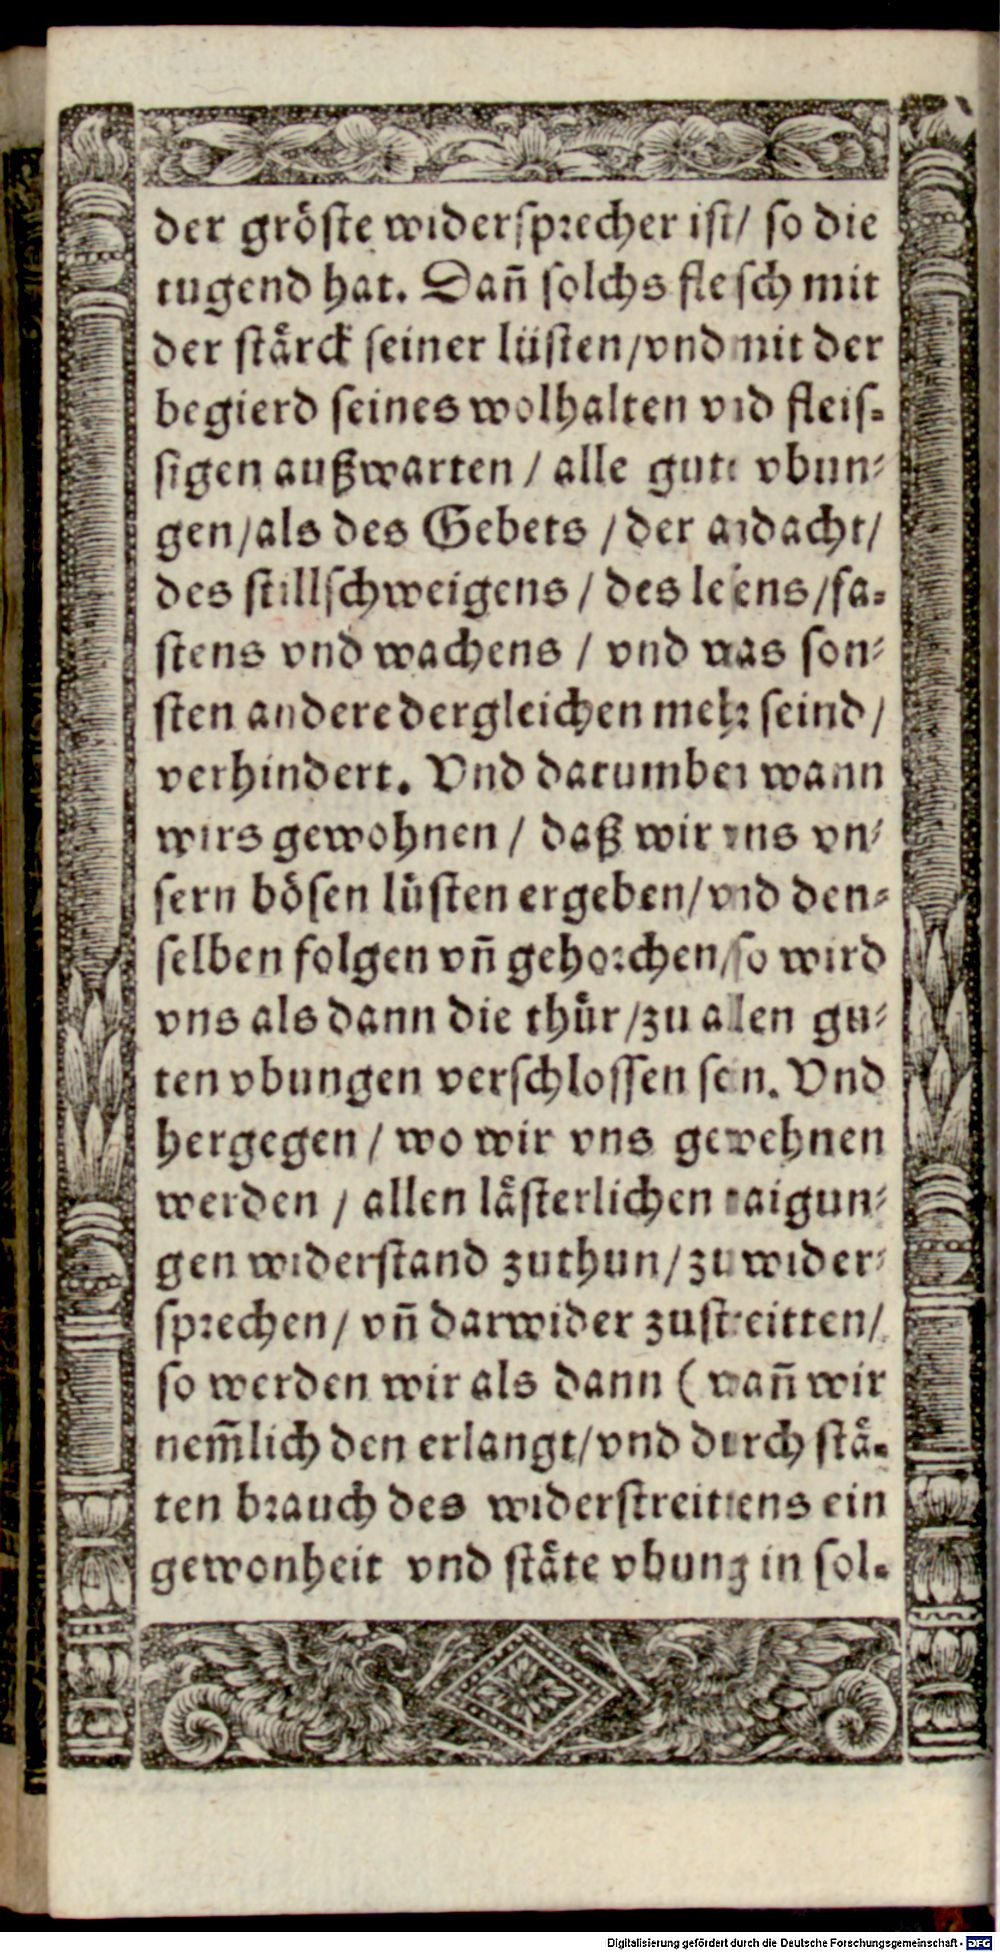 der gröste widersprecher ist/ so die
tugend hat. Dañ solchs fleisch mit
der stärck seiner lüsten/vnd mit der
begierd seines wolhalten vnd fleis-
sigen außwarten / alle gute vbun-
gen/als des Gebets / der andacht/
des stillschweigens / des lesens/fa-
stens vnd wachens / vnd was son-
sten andere dergleichen mehr seind/
verhindert. Vnd darumben wann
wirs gewohnen / daß wir vns vn-
sern bösen lüsten ergeben/vnd den-
selben folgen vñ gehorchen/so wird
vns als dann die thür/zu allen gu-
ten vbungen verschlossen sein. Vnd
hergegen / wo wir vns gewehnen
werden / allen lästerlichen naigun-
gen widerstand zuthun/zu wider-
sprechen/ vñ darwider zustreitten/
so werden wir als dann (wañ wir
nem̃lich den erlangt/vnd durch stä-
ten brauch des widerstreittens ein
gewonheit vnd stäte vbung in sol-
Digitalisierung gefördert durch die Deutsche Forschungsgemeinschaft - DFG